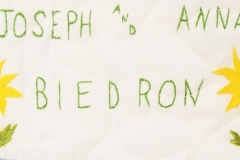 JOSEPH AND ANNA
BIEDRON